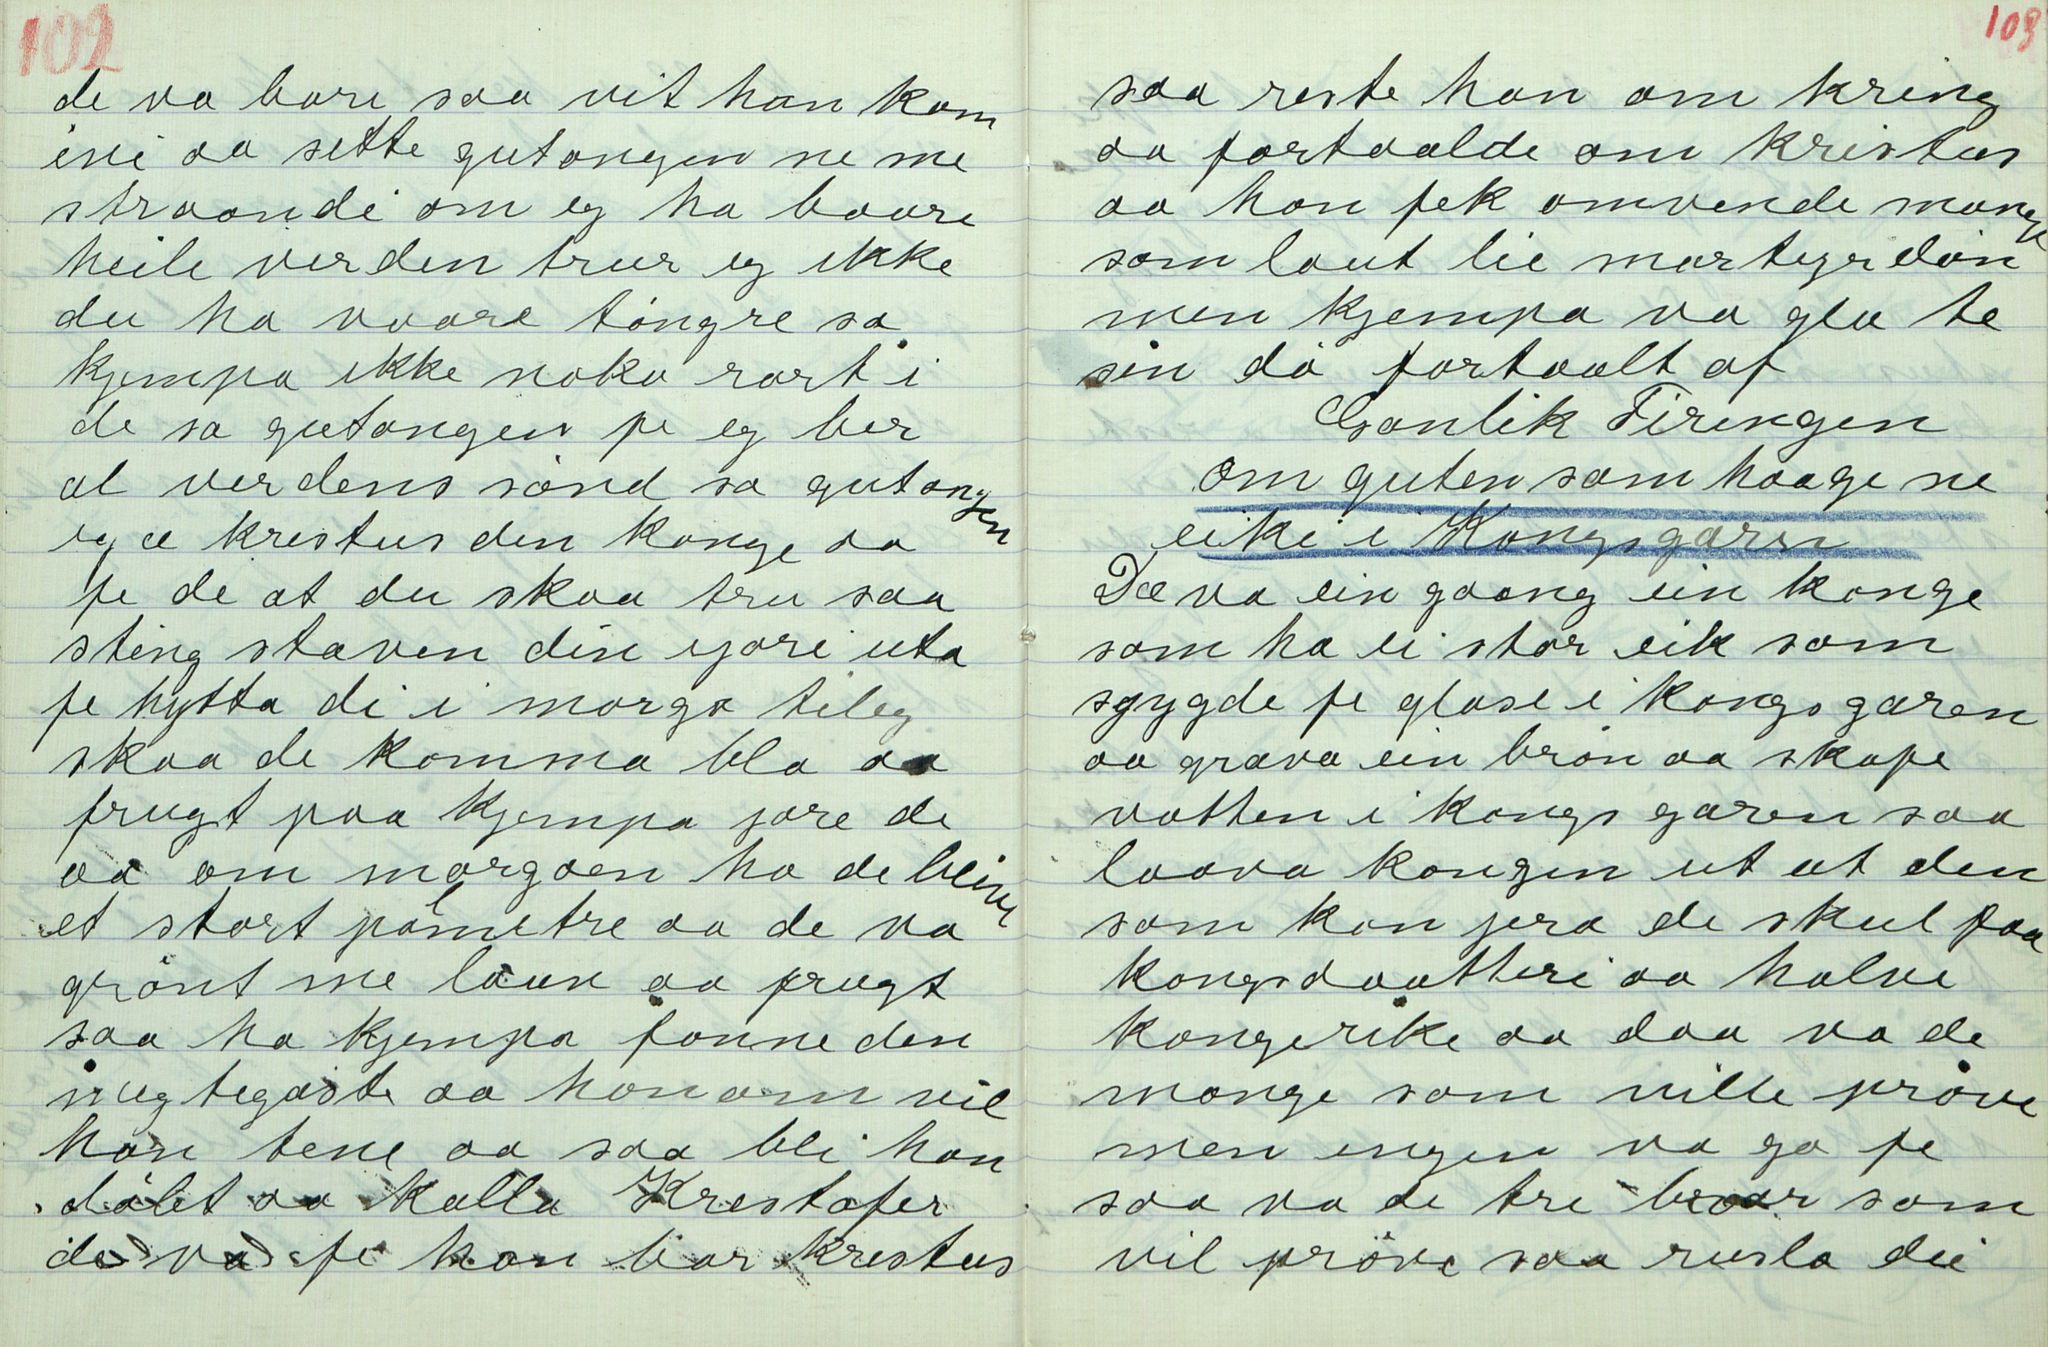 102
de va bare saa vit han kom
ini aa sette gutongen ne me
straandi om eg ha baare
heile verden trur eg ikke
du ha vaare tóngre sa
kjempa ikke noko rart i
de sa gutongen fe eg ber
al verdens sónd sa gutongen
eg æ krestus den konge aa
fe de at du skaa tru saa
sting staven din i jore uta
fe hytta di i morgo tileg
skaa de komma bla aa
frugt paa kjempa jore de
aa om morgoen ha de blive
et stort pálmetre aa de va
grónt me lauv aa frugt
saa ha kjempa fonne den
megtegaste aa honom vil
han tene aa saa bli han
dópt aa kalla Krestofer
de va fe han bar krestus
103
saa reste han om kring
aa fortaalde om kristus
aa han fek omvende mange
som laut lie martyrdón
men kjempa va gla te
sin dó fortaalt af
Gonlik Tiringen
om guten som haage ne
eiki i Kongsgarn
Dæ va ein goong ein konge
som ha ei stor eik som
sgygde fe glase i kongsgaren
aa grava ein brón aa skafe
vatten i kongsgaren saa
laava kongen ut at den
som kan jera de skul faa
kongsdaatteri aa halve
kongerike aa daa va de
mange som ville próve
men ingen va go fe
saa va de tre bróar som
vil próve saa rusla dei